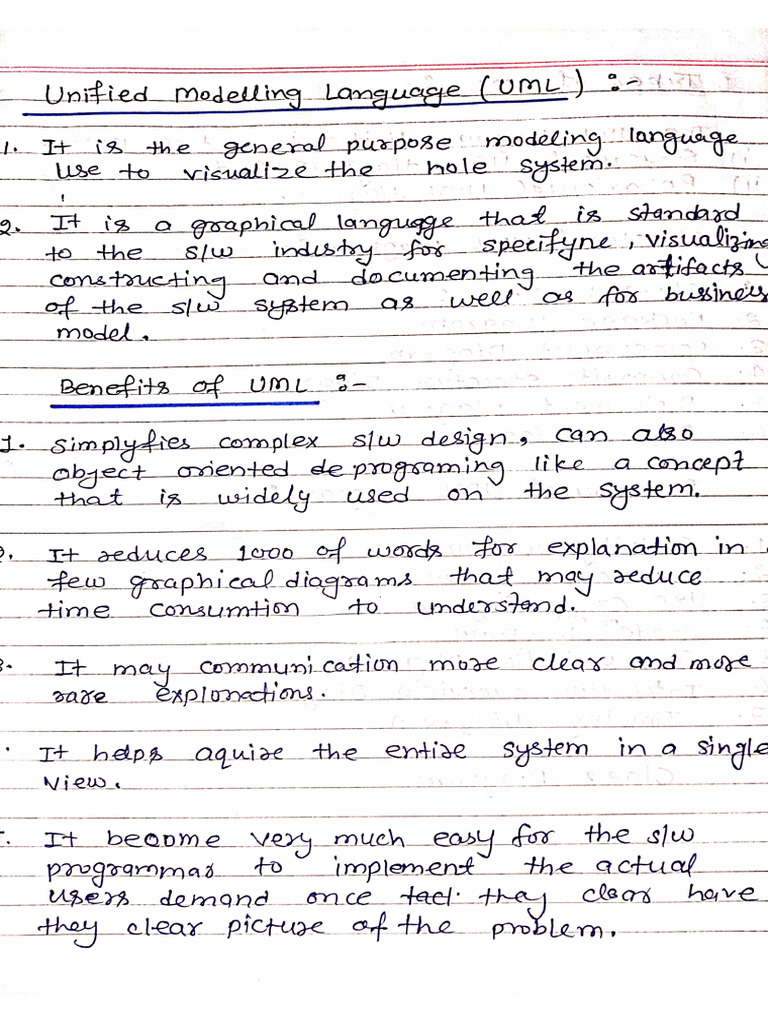 Unified Modelling Language (UML) :-
1. It is the general purpose modeling language
use to visualize the hole system.
2. It is a graphical language that is standard
to the s/w industry for specifyne, visualizing
constructing and documenting the artifacts
of the s/w system as well as for bussiness
model.
Benefits of UML :-
1. Simplyfies complex s/w design, can also
object oriented de programing like a concept
that is widely used on the system.
2. It reduces 1000 of words for explanation in
few graphical diagrams that may reduce
time consumtion to understand.
3. It may communication more clear and more
rare explonections.
. It helps aquire the entire system in a single
view.
. It become very much easy for the s/w
programmar to implement the actual
users demand once they clear have
they clear picture of the problem.